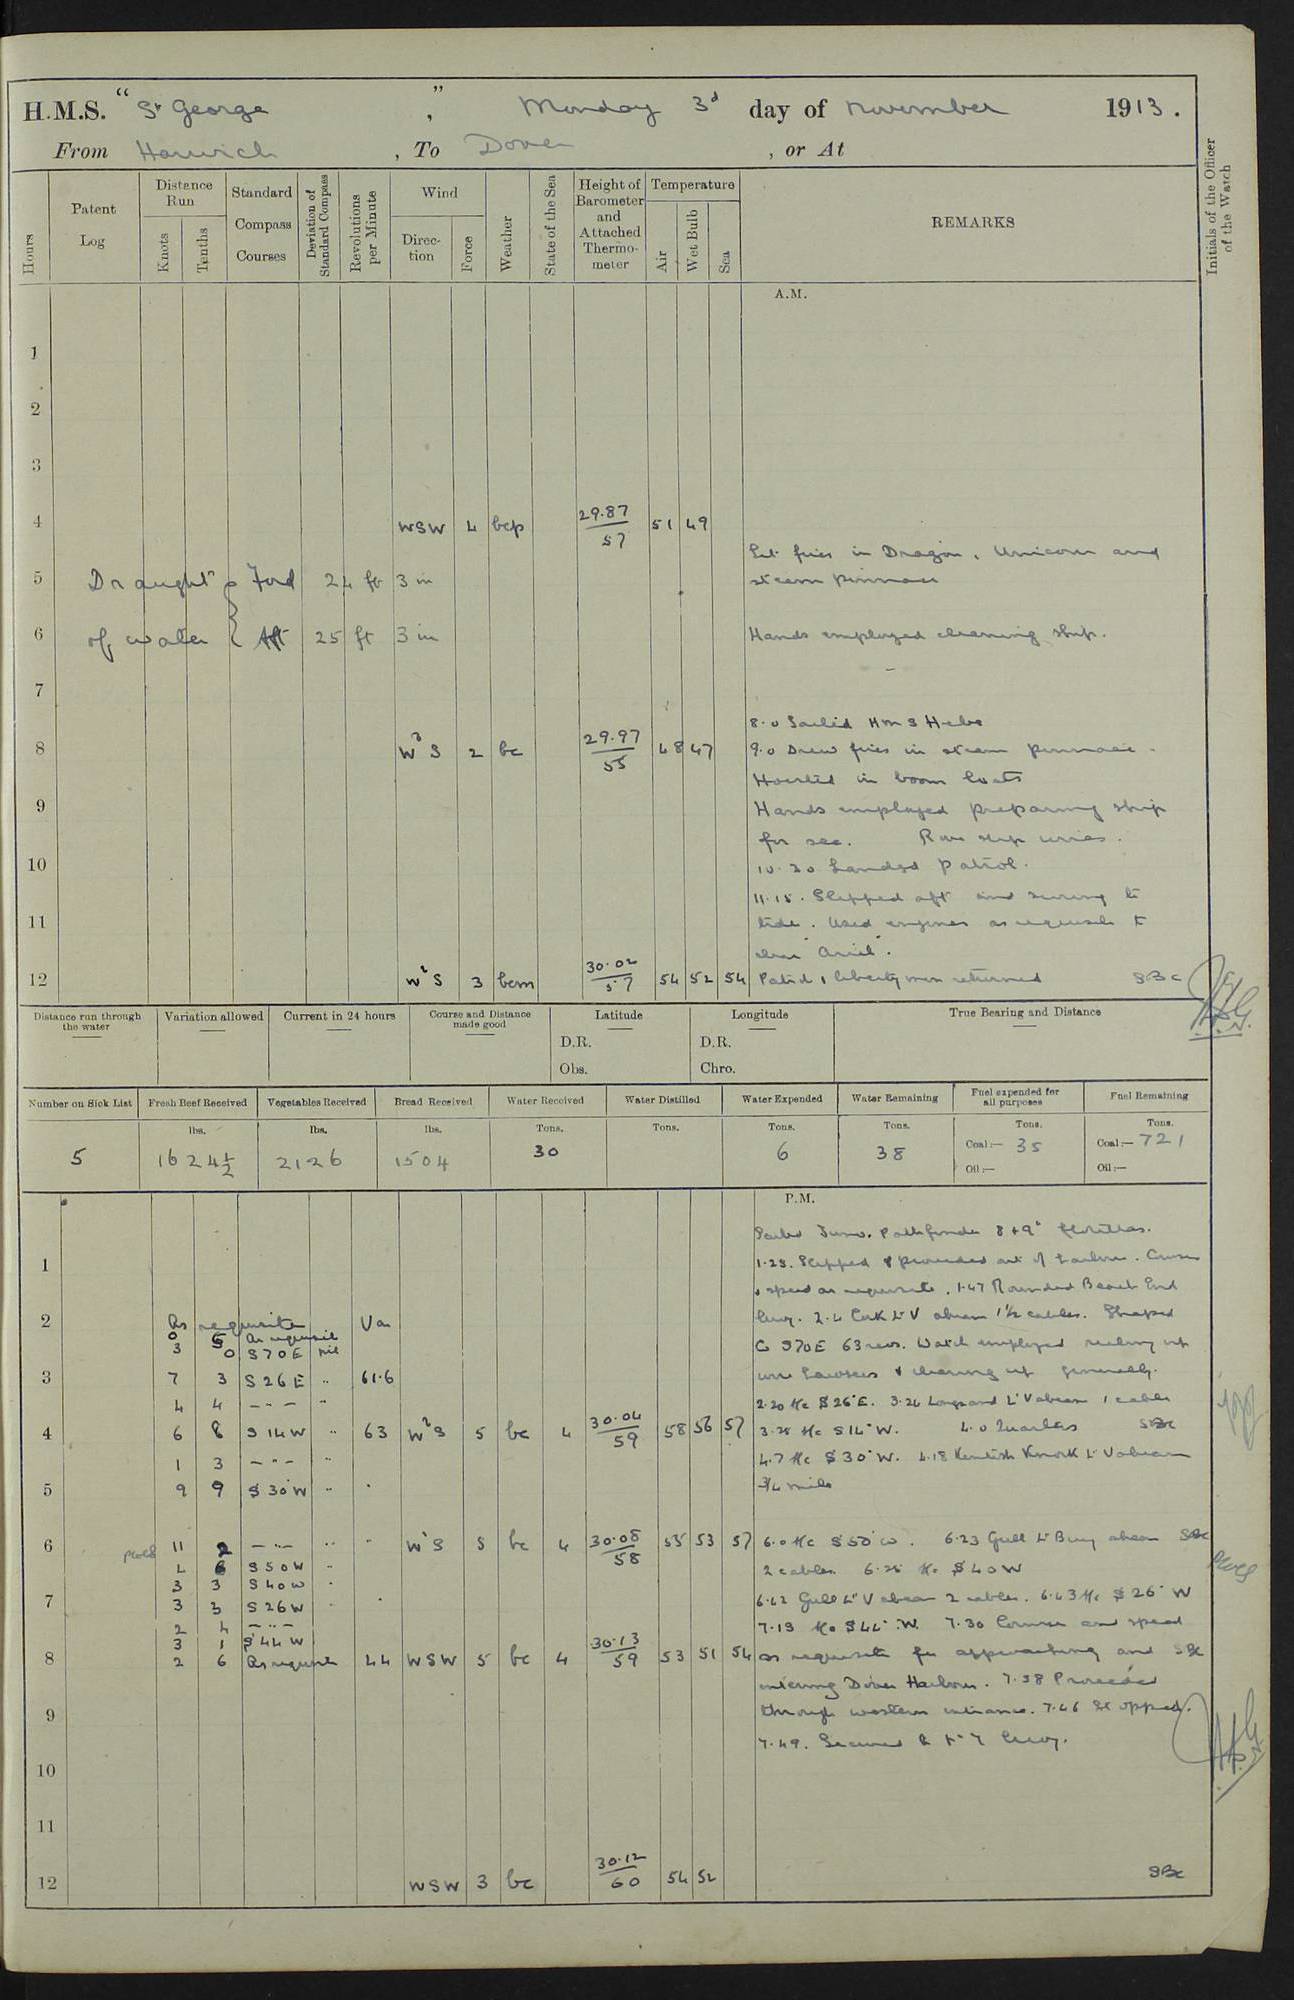 H.M.S. "St George", Monday 3d day of November 1913.
From Harwich, To Dover, or At
Hours
Patent Log
Distance Run
Knots
Tenths
Standard Compass Courses
Deviation of Standard Compass
Revolutions per Minute
Wind
Direction
Force
Weather
State of the Sea
Height of Barometer and Attached Thermometer
Temperature
Air
Wet Bulb
Sea
REMARKS
Initials of the Officer of the Watch
A.M.
1
2
3
4 WSW 4 bcp 29.87 57 51 49
Lit fires in Dragon, Unicorn and
5 Draught Ford 24 ft 3 in steam pinnace
6 of water Aft 25 ft 3 in Hands employed cleaning ship.
7
8.0 Sailed HMS Hebe
8 W S 2 bc 29.97 55 48 47 9.0 Drew fires in steam pinnace.
Hoisted in boom boats
9 Hands employed preparing ship
for sea.
10 10.30 Landed Patrol.
11.15. Slipped aft and swung to
11 tide. Used engines as requisite to
clear "Ariel".
12 W S 3 bcm 30.02 57 54 52 54 Patrol, liberty men returned SBc
Distance run through the water
Variation allowed
Current in 24 hours
Course and Distance made good
Latitude
D.R.
Obs.
Longitude
D.R.
Chro.
True Bearing and Distance
Number on Sick List Fresh Beef Received Vegetables Received Bread Received Water Received Water Distilled Water Expended Water Remaining Fuel expended for all purposes Fuel Remaining
lbs. lbs. lbs. Tons. Tons. Tons. Tons. Tons. Tons.
5 1624½ 2126 1504 30 6 38 Coal:— 35 Coal:— 721
Oil:— Oil:—
P.M.
Sailed Juno, Pathfinder 8 + 9th flotillas.
1 1.23. Slipped & proceeded out of harbour. Course
& speed as requisite. 1.47 Rounded Beach End
2 As requisite Var buoy. 2.4 Cork Lt V abeam 1½ cables. Shaped
0 5 As requisite
3 0 S70E nil Co S70E 63 revs. Watch employed reeling up
3 7 3 S26E " 61.6 wire hawsers & clearing up generally.
4 4 — " — " 2.20 A/c S26°E. 3.24 Longsand Lt V abeam 1 cable
4 6 8 S14W " 63 W S 5 bc 4 30.04 59 58 56 57 3.28 A/c S14°W. 4.0 Quarters SBc
1 3 — " — " 4.7 A/c S30°W. 4.18 Kentish Knock Lt V abeam
5 9 9 S30W " " ¾ mile
6 11 2 — " — " " W S 5 bc 4 30.08 58 55 53 57 6.0 A/c S50°W. 6.23 Gull Lt Buoy abeam SBc
4 6 S50W " 2 cables. 6.25 A/c S40W
3 3 S40W "
7 3 3 S26W " " 6.42 Gull Lt V abeam 2 cables. 6.43 A/c S26°W
2 4 — " — 7.13 A/c S44°W. 7.30 Course and speed
3 1 S44W
8 2 6 As requisite 44 WSW 5 bc 4 30.13 59 53 51 54 as requisite for approaching and SBc
entering Dover Harbour. 7.38 Proceeded
9 through western entrance. 7.46 Stopped.
7.49. Secured to No 7 buoy.
10
11
12 WSW 3 bc 30.12 60 54 52 SBc